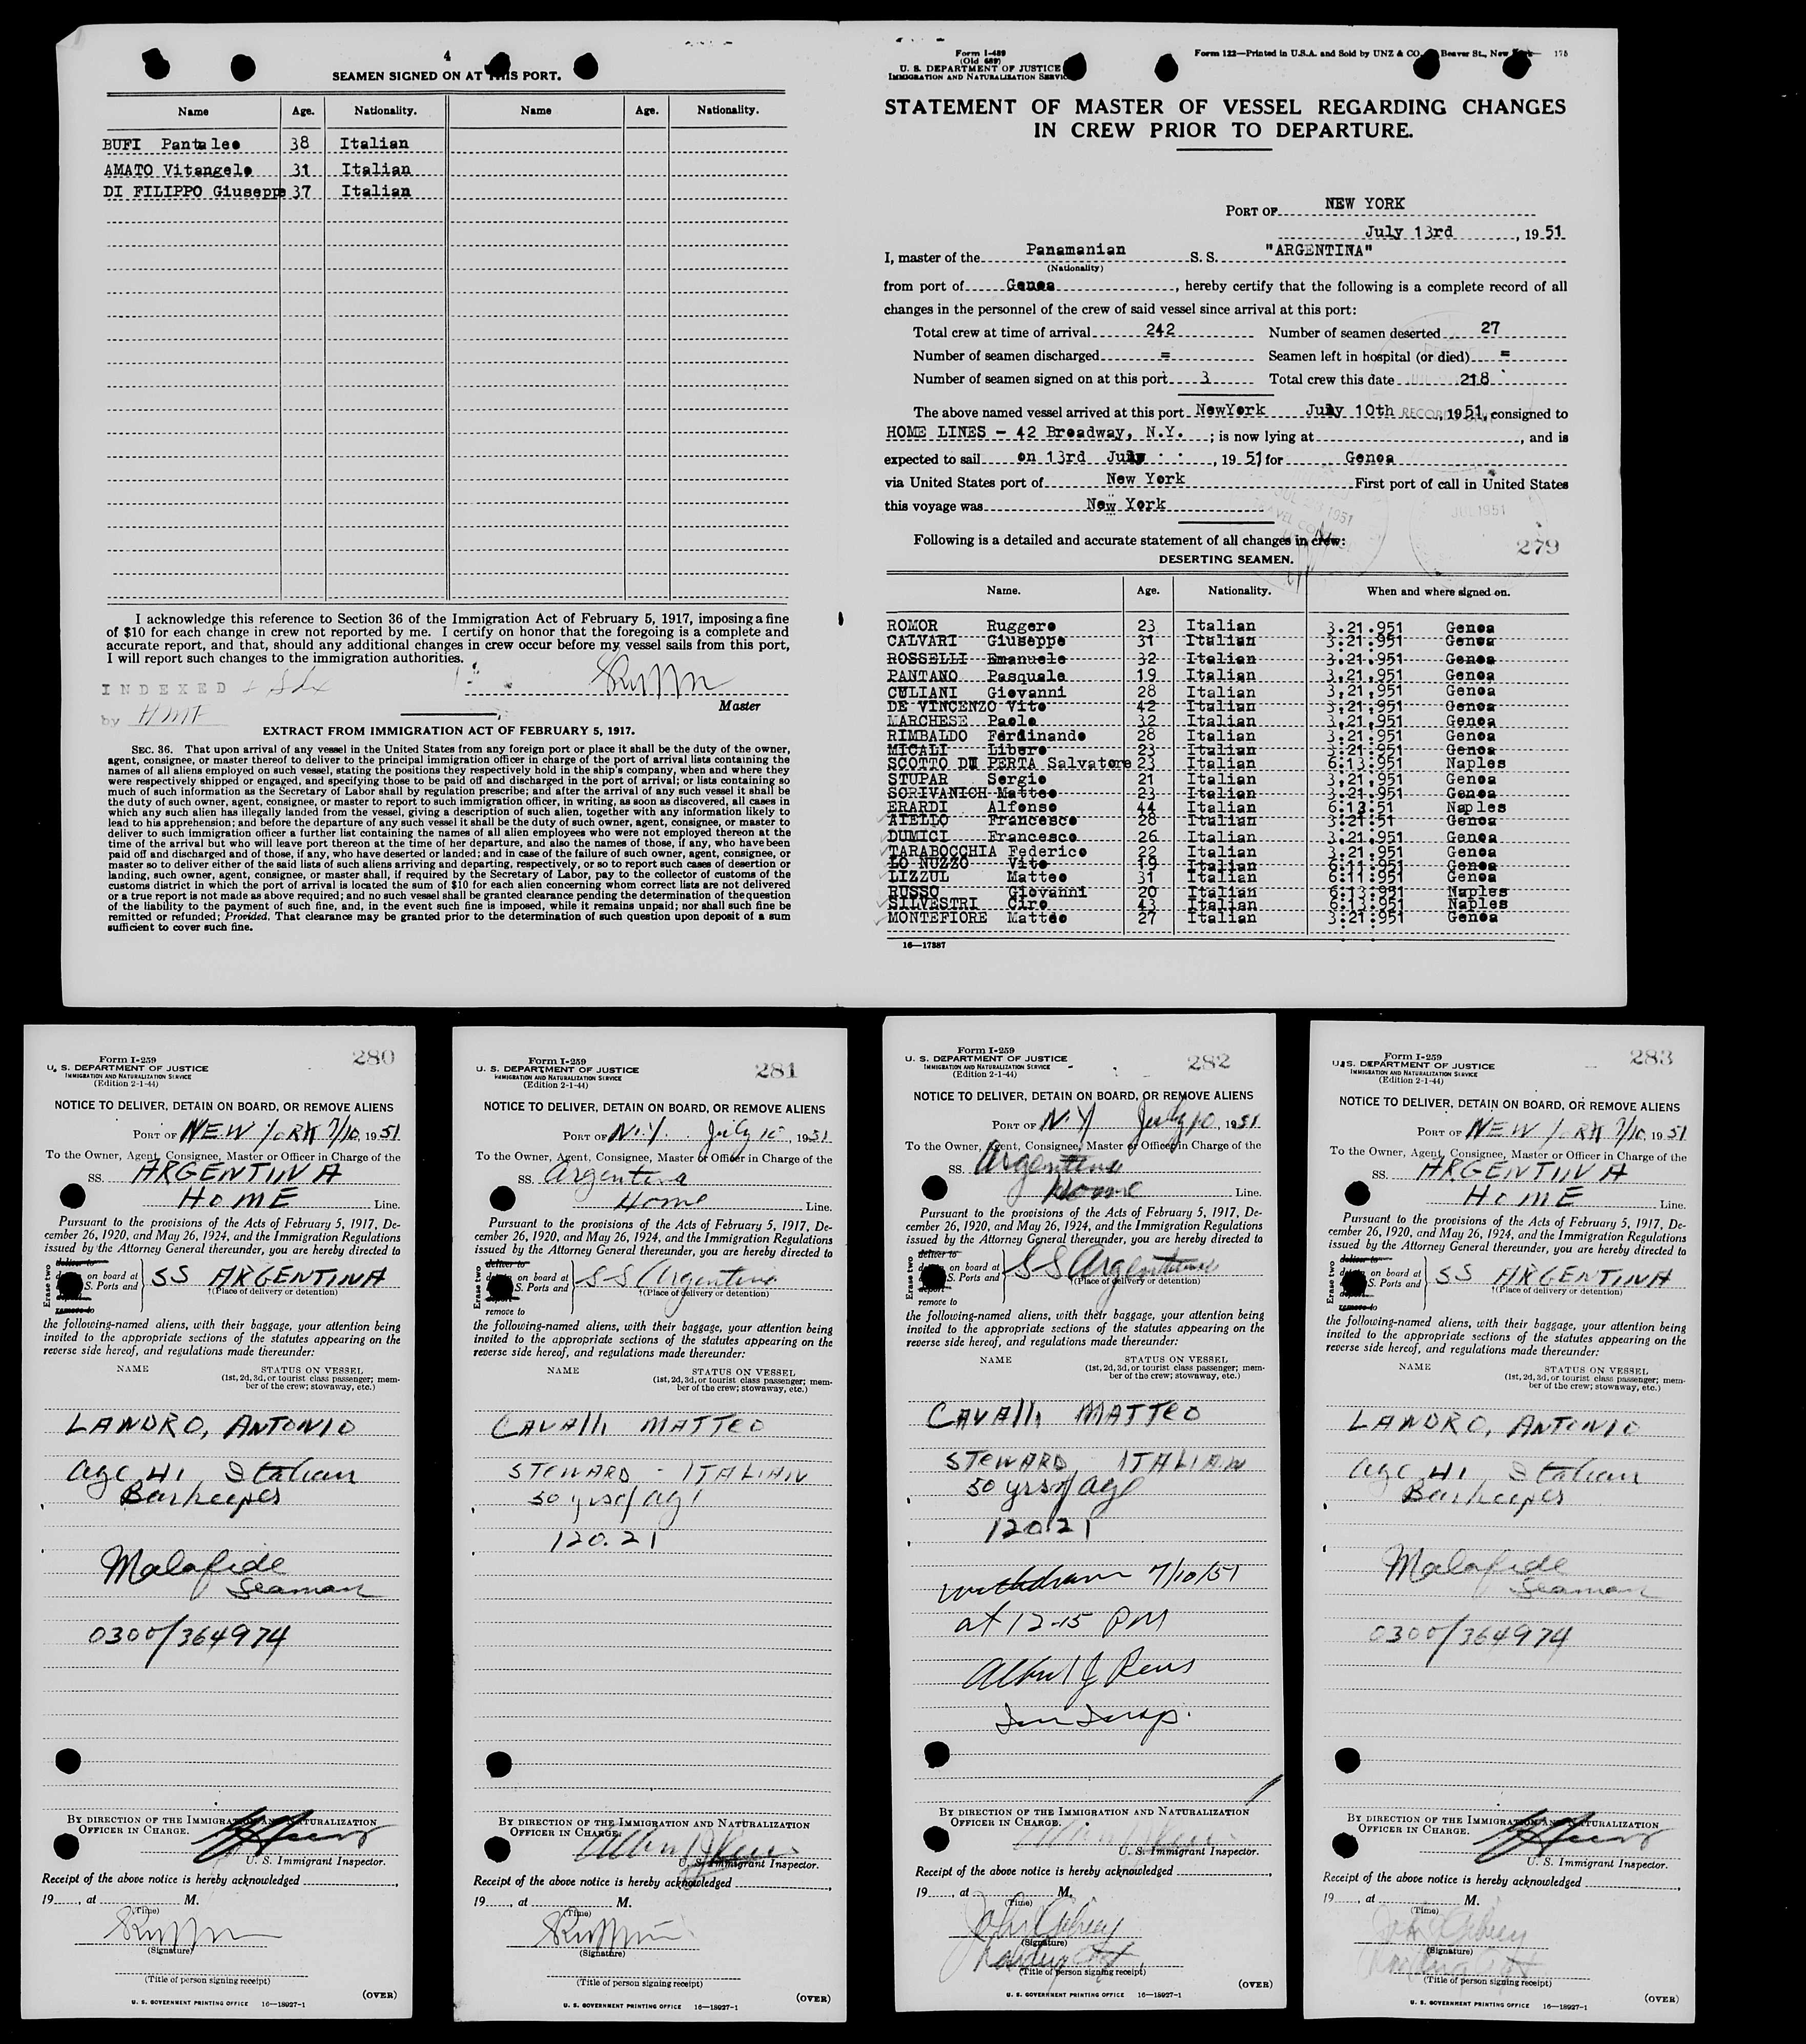 4
SEAMEN SIGNED ON AT THIS PORT.
Name Age. Nationality. Name Age. Nationality.
BUFI Pantaleo 38 Italian
AMATO Vitangelo 31 Italian
DI FILIPPO Giuseppe 37 Italian
I acknowledge this reference to Section 36 of the Immigration Act of February 5, 1917, imposing a fine
of $10 for each change in crew not reported by me. I certify on honor that the foregoing is a complete and
accurate report, and that, should any additional changes in crew occur before my vessel sails from this port,
I will report such changes to the immigration authorities.
INDEXED
Master
by HMF
EXTRACT FROM IMMIGRATION ACT OF FEBRUARY 5, 1917.
SEC. 36. That upon arrival of any vessel in the United States from any foreign port or place it shall be the duty of the owner,
agent, consignee, or master thereof to deliver to the principal immigration officer in charge of the port of arrival lists containing the
names of all aliens employed on such vessel, stating the positions they respectively hold in the ship's company, when and where they
were respectively shipped or engaged, and specifying those to be paid off and discharged in the port of arrival; or lists containing so
much of such information as the Secretary of Labor shall by regulation prescribe; and after the arrival of any such vessel it shall be
the duty of such owner, agent, consignee, or master to report to such immigration officer, in writing, as soon as discovered, all cases in
which any such alien has illegally landed from the vessel, giving a description of such alien, together with any information likely to
lead to his apprehension; and before the departure of any such vessel it shall be the duty of such owner, agent, consignee, or master to
deliver to such immigration officer a further list containing the names of all alien employees who were not employed thereon at the
time of the arrival but who will leave port thereon at the time of her departure, and also the names of those, if any, who have been
paid off and discharged and of those, if any, who have deserted or landed; and in case of the failure of such owner, agent, consignee, or
master so to deliver either of the said lists of such aliens arriving and departing, respectively, or so to report such cases of desertion or
landing, such owner, agent, consignee, or master shall, if required by the Secretary of Labor, pay to the collector of customs of the
customs district in which the port of arrival is located the sum of $10 for each alien concerning whom correct lists are not delivered
or a true report is not made as above required; and no such vessel shall be granted clearance pending the determination of the question
of the liability to the payment of such fine, and, in the event such fine is imposed, while it remains unpaid; nor shall such fine be
remitted or refunded; Provided, That clearance may be granted prior to the determination of such question upon deposit of a sum
sufficient to cover such fine.
Form I-489
(Old 689)
U. S. DEPARTMENT OF JUSTICE
IMMIGRATION AND NATURALIZATION SERVICE
Form 122—Printed in U.S.A. and Sold by UNZ & CO. Beaver St., New York 175
STATEMENT OF MASTER OF VESSEL REGARDING CHANGES
IN CREW PRIOR TO DEPARTURE.
PORT OF NEW YORK
July 13rd , 1951
I, master of the Panamanian S. S. "ARGENTINA"
(Nationality)
from port of Genoa , hereby certify that the following is a complete record of all
changes in the personnel of the crew of said vessel since arrival at this port:
Total crew at time of arrival 242 Number of seamen deserted 27
Number of seamen discharged = Seamen left in hospital (or died) =
Number of seamen signed on at this port 3 Total crew this date 218
The above named vessel arrived at this port NewYork July 10th , 1951, consigned to
HOME LINES - 42 Broadway, N.Y. ; is now lying at , and is
expected to sail on 13rd July , 1951 for Genoa
via United States port of New York First port of call in United States
this voyage was New York
JUL 1951
Following is a detailed and accurate statement of all changes in crew:
279
DESERTING SEAMEN.
Name. Age. Nationality. When and where signed on.
ROMOR Ruggero 23 Italian 3.21.951 Genoa
CALVARI Giuseppe 31 Italian 3.21.951 Genoa
ROSSELLI Emanuele 32 Italian 3.21.951 Genoa
PANTANO Pasquale 19 Italian 3.21.951 Genoa
CULIANI Giovanni 28 Italian 3.21.951 Genoa
DE VINCENZO Vito 42 Italian 3.21.951 Genoa
MARCHESE Paolo 32 Italian 3.21.951 Genoa
RIMBALDO Ferdinando 28 Italian 3.21.951 Genoa
MICALI Libero 23 Italian 3.21.951 Genoa
SCOTTO DI PERTA Salvatore 23 Italian 6.13.951 Naples
STUPAR Sergio 21 Italian 3.21.951 Genoa
SORIVANICH Matteo 23 Italian 3.21.951 Genoa
ERARDI Alfonso 44 Italian 6.13.51 Naples
AIELLO Francesco 28 Italian 3.21.51 Genoa
DUMICI Francesco 26 Italian 3.21.951 Genoa
TARABOCCHIA Federico 22 Italian 3.21.951 Genoa
LO NUZZO Vito 19 Italian 6.11.951 Genoa
LIZZUL Matteo 31 Italian 6.11.951 Genoa
RUSSO Giovanni 20 Italian 6.13.951 Naples
SILVESTRI Ciro 43 Italian 6.13.951 Naples
MONTEFIORE Matteo 27 Italian 3.21.951 Genoa
16—17387
280
Form I-259
U. S. DEPARTMENT OF JUSTICE
IMMIGRATION AND NATURALIZATION SERVICE
(Edition 2-1-44)
NOTICE TO DELIVER, DETAIN ON BOARD, OR REMOVE ALIENS
PORT OF NEW YORK 7/10, 1951
To the Owner, Agent, Consignee, Master or Officer in Charge of the
SS. ARGENTINA
HOME Line.
Pursuant to the provisions of the Acts of February 5, 1917, De-
cember 26, 1920, and May 26, 1924, and the Immigration Regulations
issued by the Attorney General thereunder, you are hereby directed to
Erase two
deliver to
on board at
S. Ports and
remove to
SS ARGENTINA
†(Place of delivery or detention)
the following-named aliens, with their baggage, your attention being
invited to the appropriate sections of the statutes appearing on the
reverse side hereof, and regulations made thereunder:
NAME STATUS ON VESSEL
(1st, 2d, 3d, or tourist class passenger; mem-
ber of the crew; stowaway, etc.)
LANDRO, ANTONIO
age 41, Italian
Barkeeper
Malafide
Seaman
0300/364974
BY DIRECTION OF THE IMMIGRATION AND NATURALIZATION
OFFICER IN CHARGE.
U. S. Immigrant Inspector.
Receipt of the above notice is hereby acknowledged
19 , at M.
(Time)
(Signature)
(Title of person signing receipt)
(OVER)
U. S. GOVERNMENT PRINTING OFFICE 16—18927-1
281
Form I-259
U. S. DEPARTMENT OF JUSTICE
IMMIGRATION AND NATURALIZATION SERVICE
(Edition 2-1-44)
NOTICE TO DELIVER, DETAIN ON BOARD, OR REMOVE ALIENS
PORT OF N.Y. July 10, 1951
To the Owner, Agent, Consignee, Master or Officer in Charge of the
SS. Argentina
Home Line.
Pursuant to the provisions of the Acts of February 5, 1917, De-
cember 26, 1920, and May 26, 1924, and the Immigration Regulations
issued by the Attorney General thereunder, you are hereby directed to
Erase two
deliver to
on board at
S. Ports and
remove to
SS Argentina
†(Place of delivery or detention)
the following-named aliens, with their baggage, your attention being
invited to the appropriate sections of the statutes appearing on the
reverse side hereof, and regulations made thereunder:
NAME STATUS ON VESSEL
(1st, 2d, 3d, or tourist class passenger; mem-
ber of the crew; stowaway, etc.)
CAVAlli MATTEO
STEWARD - ITALIAN
50 yrs of age
120.21
BY DIRECTION OF THE IMMIGRATION AND NATURALIZATION
OFFICER IN CHARGE.
U. S. Immigrant Inspector.
Receipt of the above notice is hereby acknowledged
19 , at M.
(Time)
(Signature)
(Title of person signing receipt)
(OVER)
U. S. GOVERNMENT PRINTING OFFICE 16—18927-1
282
Form I-259
U. S. DEPARTMENT OF JUSTICE
IMMIGRATION AND NATURALIZATION SERVICE
(Edition 2-1-44)
NOTICE TO DELIVER, DETAIN ON BOARD, OR REMOVE ALIENS
PORT OF N.Y July 10, 1951
To the Owner, Agent, Consignee, Master or Officer in Charge of the
SS. Argentina
Home Line.
Pursuant to the provisions of the Acts of February 5, 1917, De-
cember 26, 1920, and May 26, 1924, and the Immigration Regulations
issued by the Attorney General thereunder, you are hereby directed to
Erase two
deliver to
on board at
S. Ports and
remove to
SS Argentina
†(Place of delivery or detention)
the following-named aliens, with their baggage, your attention being
invited to the appropriate sections of the statutes appearing on the
reverse side hereof, and regulations made thereunder:
NAME STATUS ON VESSEL
(1st, 2d, 3d, or tourist class passenger; mem-
ber of the crew; stowaway, etc.)
CAVAlli MATTEO
STEWARD ITALIAN
50 yrs of age
120.21
withdrawn 7/10/51
at 12-15 PM
BY DIRECTION OF THE IMMIGRATION AND NATURALIZATION
OFFICER IN CHARGE.
U. S. Immigrant Inspector.
Receipt of the above notice is hereby acknowledged
19 , at M.
(Time)
(Signature)
(Title of person signing receipt)
(OVER)
U. S. GOVERNMENT PRINTING OFFICE 16—18927-1
283
Form I-259
U. S. DEPARTMENT OF JUSTICE
IMMIGRATION AND NATURALIZATION SERVICE
(Edition 2-1-44)
NOTICE TO DELIVER, DETAIN ON BOARD, OR REMOVE ALIENS
PORT OF NEW YORK 7/10, 1951
To the Owner, Agent, Consignee, Master or Officer in Charge of the
SS. ARGENTINA
HOME Line.
Pursuant to the provisions of the Acts of February 5, 1917, De-
cember 26, 1920, and May 26, 1924, and the Immigration Regulations
issued by the Attorney General thereunder, you are hereby directed to
Erase two
deliver to
on board at
S. Ports and
remove to
SS ARGENTINA
†(Place of delivery or detention)
the following-named aliens, with their baggage, your attention being
invited to the appropriate sections of the statutes appearing on the
reverse side hereof, and regulations made thereunder:
NAME STATUS ON VESSEL
(1st, 2d, 3d, or tourist class passenger; mem-
ber of the crew; stowaway, etc.)
LANDRO, ANTONIO
age 41, Italian
Barkeeper
Malafide
Seaman
0300/364974
BY DIRECTION OF THE IMMIGRATION AND NATURALIZATION
OFFICER IN CHARGE.
U. S. Immigrant Inspector.
Receipt of the above notice is hereby acknowledged
19 , at M.
(Time)
(Signature)
(Title of person signing receipt)
(OVER)
U. S. GOVERNMENT PRINTING OFFICE 16—18927-1